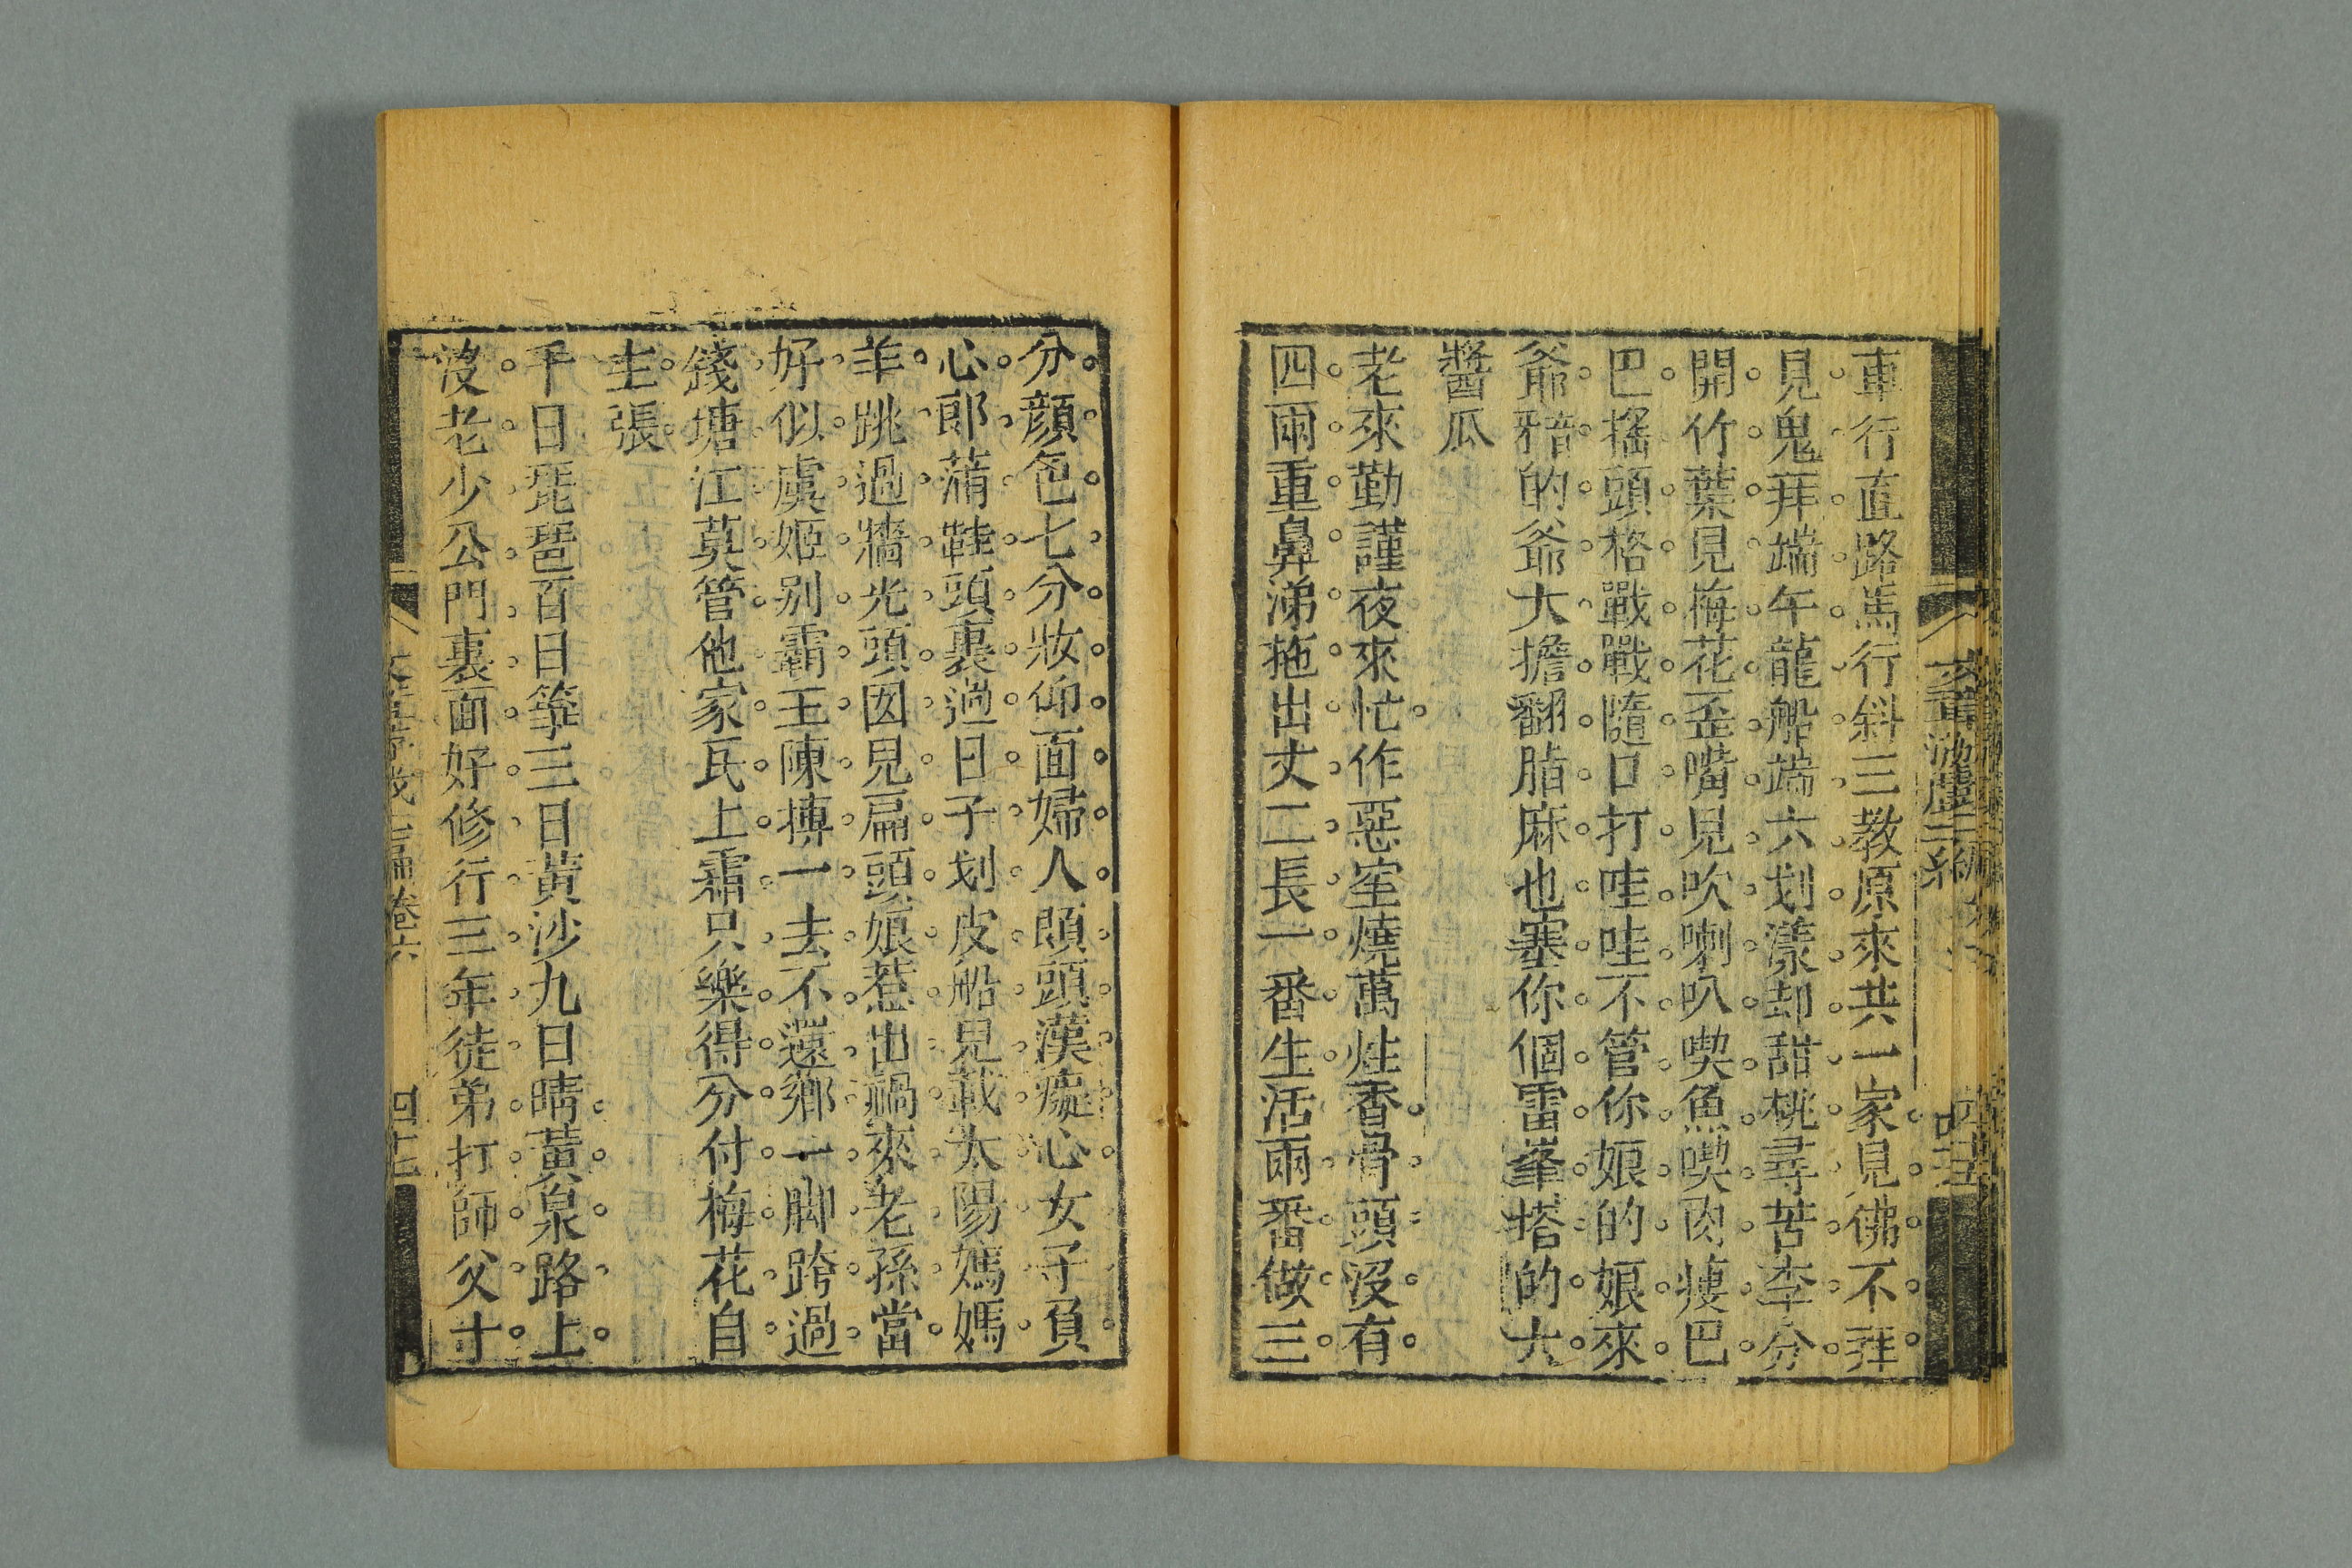 車行直路馬行斜三教原來共一家見佛不拜
見鬼拜端午龍船端六划漾却甜桃尋苦李分
開竹葉見梅花歪嘴見吹喇叭喫魚喫肉痩巴
巴搖頭格戰戰隨口打哇哇不管你娘的娘來
爺稖的爺大擔翻脂麻也塞你個雷峯塔的大
醬瓜
老來勤謹夜來忙作惡寉燒萬炷香骨頭沒有
四兩重鼻涕拖出丈二長一番生活兩番做三
分顔色七分妝仰面婦人頤頭漢癡心女子負
心郎蒲鞋頭裏過日子划皮船見載太陽媽媽
羊跳過牆光頭囡見扁頭娘惹出禍來老孫當
好似虞姬别霸王陳摶一去不還鄉一脚跨過
錢塘江莫管他家瓦上霜只樂得分付梅花自
主張
千日琵琶百日箏三日黃沙九日晴黃泉路上
沒老少公門裏面好修行三年徒弟打師父十
卷六